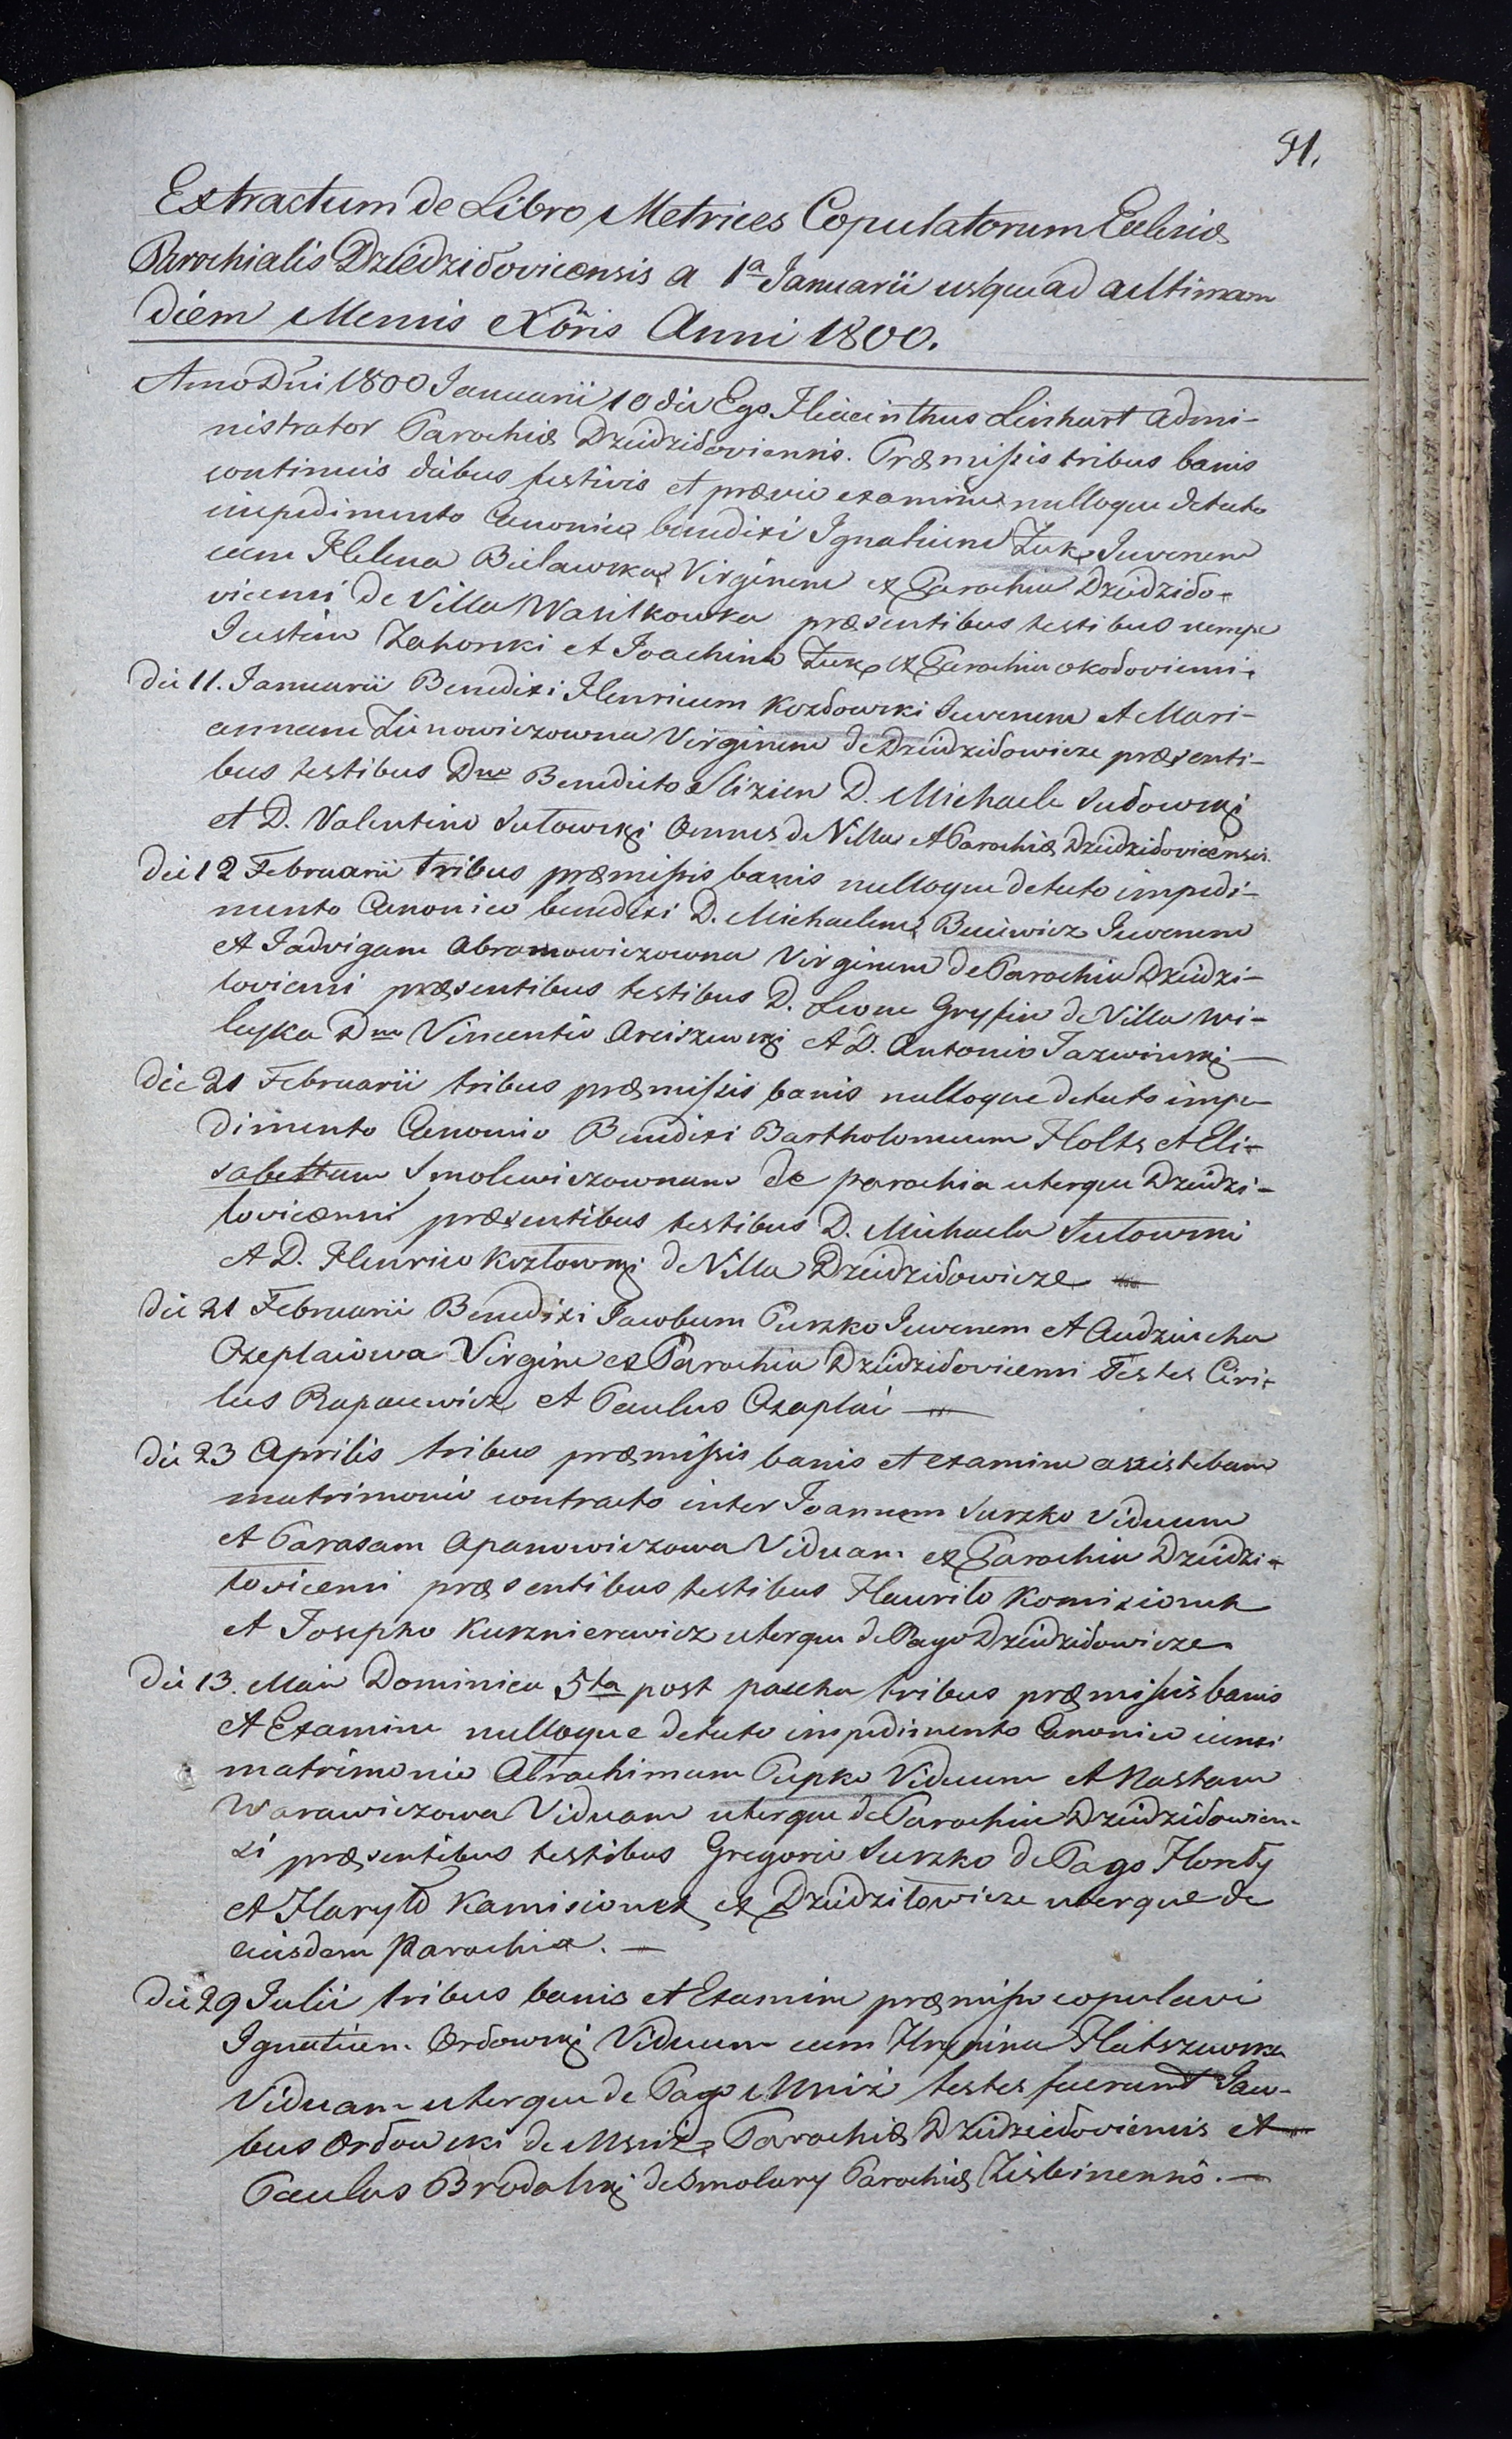 91.
Extractum de Libro Metrices Copulatorum Ecclesiæ
Parochialis Dziedziłovicensis a 1ª Januarii usque ad aultimam
diem Mensis Xbris Anni 1800.
Anno Dni 1800 Januarii 10 die Ego Hiacinthus Linhart admi-
nistrator Parochiæ Dzidziłoviensis. Præmissis tribus banis
continuis diebus festivis et prævio examine nulloque detecto
impedimento Canonico benedixi Ignatium Żuk Juvenem
cum Helena Bielawska Virginem ex Parochia Dzidziło-
vicensi de Villa Wasilkowka præsentibus testibus nempe
Justino Zahorski et Joachino Żuk ex Parochia okołoviensi.
Die 11. Januarii Benedixi Henricum Kozłowski Juvenem et Mari-
annam Zinowiczowna Virginem de Dzidziłowicze præsenti-
bus testibus Dno Benedicto Slizien D. Michaele Sutowski
et D. Valentino Sutowski Omnes de Villa et Parochiæ Dzidziłovicensis.
Die 12 Februarii tribus præmissis banis nulloque detecto impedi-
mento Canonico benedixi D. Michaelem Juvenem
et Jadvigam Abramowiczowna Virginem de Parochia Dzidzi-
łovicensi præsentibus testibus D. Leone Gryfin de Villa Wi-
leyka Dno Vincentio Arciszewski et D. Antonio Jazwinski
Die 21 Februarii tribus præmissis banis nulloque detecto impe-
dimento Canonico Benedixi Bartholomeum Holts et Eli-
sabettam Smolewiczownam de parochia uterque Dzidzi-
łovicensi præsentibus testibus D. Michaele Sutowski
et D. Henrico Kozłowski de Villa Dzidziłowicze
Die 21 Februarii Benedixi Jacobum Purzko Juvenem et Audziucha
Czeplaiowa Virgine ex Parochia Dzidziłovicensi Testes Ciri-
lus Rapacewicz et Paulus Czaplai
Die 23 Aprilis tribus præmissis banis et examine assistebam
matrimonio contracto inter Joannem Surzko Viduum
et Parasam Apanowiczowa Viduam ex Parochia Dzidzi-
łovicensi præsentibus testibus Hauriło Komizionek
et Josepho Kurznierewicz uterque de Pago Dzidziłowicze.
Die 13. Maii Dominica 5ta post pascha tribus præmissis banis
et Examine nulloque detecto impedimento Canonico iunxi
matrimonio Abrachimum Pupko Viduum et Nastam
Warawiczowa Viduam uterque de Parochia Dzidziłowicen-
si præsentibus testibus Gregorio Surzko de Pago Horody
et Haryło Kamisionek ex Dzidziłowicze uterque de
eiusdem Parochia.
Die 29 Julii tribus banis et Examine præmisso copulavi
Ignatium Orłowski Viduum cum Hrypina
Viduam uterque de Pago Mniż testes fuerunt Jaco-
bus Orłowski de Mniż Parochiæ Dzidziłoviensis et
Paulus Brodalski de Smolary Parochiæ Ziębinensis.